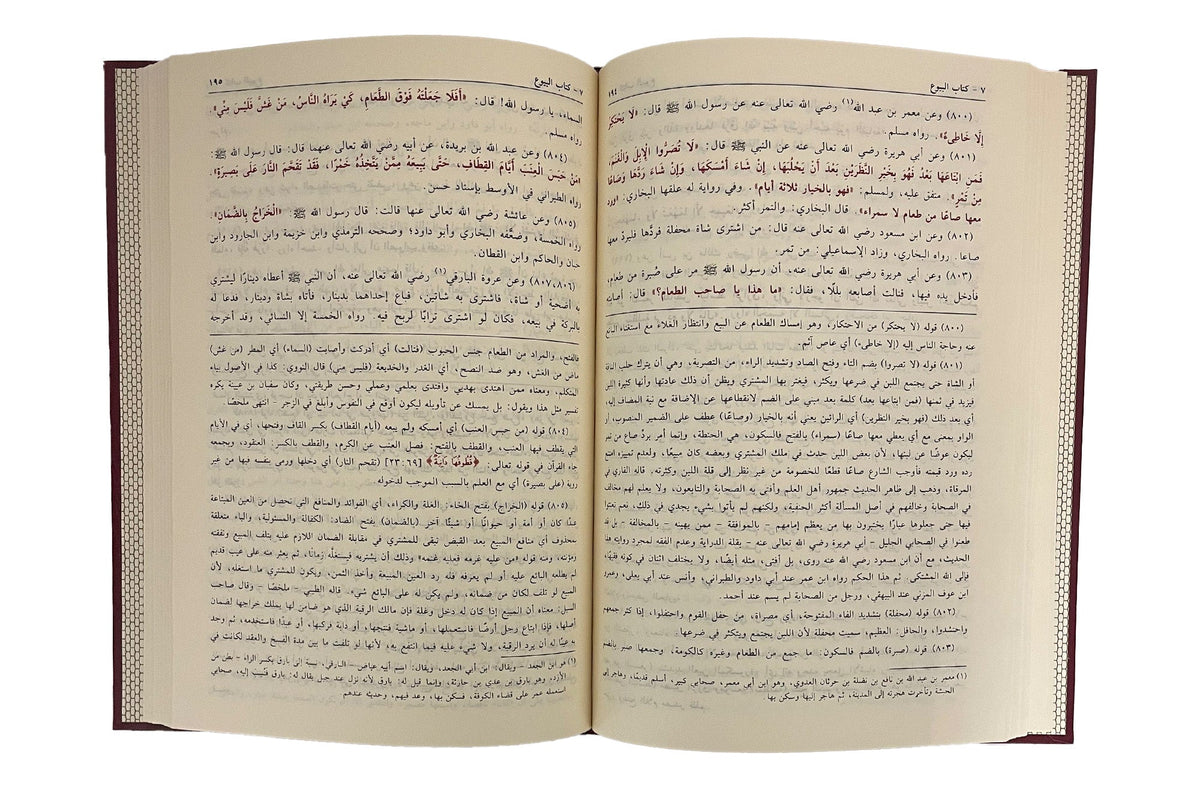 ٧ - كتاب البيوع
١٩٤
(٨٠٠) وعن معمر بن عبد الله(١) رضي الله تعالى عنه عن رسول الله ﷺ قال: «لَا يَحْتَكِرُ
إلَّا خَاطِىءٌ». رواه مسلم.
(٨٠١) وعن أبي هريرة رضي الله تعالى عنه عن النبي ﷺ قال: «لَا تُصَرُّوا الْإِبِلَ وَالْغَنَمَ،
فَمَنِ ابْتَاعَهَا بَعْدُ فَهُوَ بِخَيْرِ النَّظَرَيْنِ بَعْدَ أَنْ يَحْلُبَهَا، إِنْ شَاءَ أَمْسَكَهَا، وَإِنْ شَاءَ رَدَّهَا وَصَاعًا
مِنْ تَمْرٍ». متفق عليه، ولمسلم: «فهو بالخيار ثلاثة أيام». وفي رواية له علقها البخاري: «ورد
معها صاعًا من طعام لا سمراء». قال البخاري: والتمر أكثر.
(٨٠٢) وعن ابن مسعود رضي الله تعالى عنه قال: من اشترى شاة محفلة فردَّها فليردَّ معها
صاعا. رواه البخاري، وزاد الإسماعيلي: من تمر.
(٨٠٣) وعن أبي هريرة رضي الله تعالى عنه، أن رسول الله ﷺ مر على صُبرة من طعام،
فأدخل يده فيها، فنالت أصابعه بللًا، فقال: «ما هذا يا صاحب الطعام؟» قال: أصابته
(٨٠٠) قوله (لا يحتكر) من الاحتكار، وهو إمساك الطعام عن البيع وانتظار الغلاء مع استغناء البائع
عنه وحاجة الناس إليه (إلا خاطىء) أي عاص آثم.
(٨٠١) قوله (لا تصروا) بضم التاء وفتح الصاد وتشديد الراء، من التصرية، وهي أن يترك حلب الناقة
أو الشاة حتى يجتمع اللبن في ضرعها ويكثر، فيغتر بها المشتري ويظن أن ذلك عادتها وأنها كثيرة اللبن
فيزيد في ثمنها (فمن ابتاعها بعد) كلمة بعد مبني على الضم لانقطاعها عن الإضافة مع نية المضاف إليه،
أي بعد ذلك (فهو بخير النظرين) أي الرائين يعني أنه بالخيار (وصاعًا) عطف على الضمير المنصوب، أو
الواو بمعنى مع أي يعطي معها صاعًا (سمراء) بالفتح فالسكون، هي الحنطة، وإنما أمر بردّ صاع من تمر
ليكون عوضًا عن لبنها، لأن بعض اللبن حدث في ملك المشتري وبعضه كان مبيعًا، ولعدم تمييزه امتنع
رده ورد قيمته فأوجب الشارع صاعًا قطعًا للخصومة من غير نظر إلى قلة اللبن وكثرته. قاله القاري في
المرقاة، وذهب إلى ظاهر الحديث جمهور أهل العلم وأفتى به الصحابة والتابعون، ولا يعلم لهم مخالف
في الصحابة وخالفهم في أصل المسألة أكثر الحنفية، ولكنهم لم يأتوا بشيء يجدي في ذلك، نعم بعثوا
فيها حتى جعلوها عيارًا يختبرون بها من يعظم إمامهم - بالموافقة - ممن يهينه - بالمخالفة - بل قد
طعنوا في الصحابي الجليل - أبي هريرة رضي الله تعالى عنه - بقلة الدراية وعدم الفقه لمجرد روايته هذا
الحديث، مع أن ابن مسعود رضي الله عنه روى، بل أفتى، مثله أيضًا، ولا يختلف اثنان في كونه فقيهًا،
فإلى الله المشتكى. ثم هذا الحكم رواه ابن عمر عند أبي داود والطبراني؛ وأنس عند أبي يعلى، وعمرو
ابن عوف المزني عند البيهقي، ورجل من الصحابة لم يسم عند أحمد.
(٨٠٢) قوله (محفلة) بتشديد الفاء المفتوحة، أي مصراة، من حفل القوم واحتفلوا، إذا كثر جمعهم
واحتشدوا، والحافل: العظيم، سميت محفلة لأن اللبن يجتمع ويتكثر في ضرعها.
(٨٠٣) قوله (صبرة) بالضم فالسكون: ما جمع من الطعام وغيره كالكومة، وجمعها صبر بالضم
(١) معمر بن عبد الله بن نافع بن نضلة بن حرثان العدوي، وهو ابن أبي معمر، صحابي كبير، أسلم قديمًا، وهاجر إلى
الحبشة وتأخرت هجرته إلى المدينة، ثم هاجر إليها وسكن بها.
٧ - كتاب البيوع
١٩٥
السماء، يا رسول الله! قال: «أَفَلَا جَعَلْتَهُ فَوْقَ الطَّعَامِ، كَيْ يَرَاهُ النَّاسُ، مَنْ غَشَّ فَلَيْسَ مِنِّي».
رواه مسلم.
(٨٠٤) وعن عبد الله بن بريدة، عن أبيه رضي الله تعالى عنهما قال: قال رسول الله ﷺ:
«مَنْ حَبَسَ الْعِنَبَ أَيَّامَ الْقِطَافِ، حَتَّى يَبِيعَهُ مِمَّنْ يَتَّخِذُهُ خَمْرًا، فَقَدْ تَقَحَّمَ النَّارَ عَلَى بَصِيرَةٍ».
رواه الطبراني في الأوسط بإسناد حسن.
(٨٠٥) وعن عائشة رضي الله تعالى عنها قالت: قال رسول الله ﷺ: «الْخَرَاجُ بِالضَّمَانِ».
رواه الخمسة، وضعَّفه البخاري وأبو داود؛ وصححه الترمذي وابن خزيمة وابن الجارود وابن
حبان والحاكم وابن القطان.
(٨٠٦،٨٠٧) وعن عروة البارقي(١) رضي الله تعالى عنه، أن النبي ﷺ أعطاه دينارًا ليشتري
به أضحية أو شاة، فاشترى به شاتين، فباع إحداهما بدينار، فأتاه بشاة ودينار، فدعا له
بالبركة في بيعه، فكان لو اشترى ترابًا لربح فيه. رواه الخمسة إلا النسائي، وقد أخرجه
فالفتح، والمراد من الطعام جنس الحبوب (فنالت) أي أدركت وأصابت (السماء) أي المطر (من غش)
ماض من الغش، وهو ضد النصح، أي الغدر والخديعة (فليس مني) قال النووي: كذا في الأصول بياء
المتكلم، ومعناه ممن اهتدى بهديي واقتدى بعلمي وعملي وحسن طريقتي، وكان سفيان بن عيينة يكره
تفسير مثل هذا ويقول: بل يمسك عن تأويله ليكون أوقع في النفوس وأبلغ في الزجر - انتهى ملخصًا.
(٨٠٤) قوله (من حبس العنب) أي أمسكه ولم يبعه (أيام القطاف) بكسر القاف وفتحها، أي في الأيام
التي يقطف فيها العنب، والقطف بالفتح: فصل العنب عن الكرم، والقطف بالكسر: العنقود، وبجمعه
جاء القرآن في قوله تعالى: ﴿قُطُوفُهَا دَانِيَةٌ﴾ [٦٩:٢٣] (تقحم النار) أي دخلها ورمى بنفسه فيها من غير
روية (على بصيرة) أي مع العلم بالسبب الموجب لدخوله.
(٨٠٥) قوله (الخراج) بفتح الخاء: الغلة والكراء، أي الفوائد والمنافع التي تحصل من العين المبتاعة
عبدًا كان أو أمة أو حيوانًا أو شيئًا آخر (بالضمان) بفتح الضاد: الكفالة والمسئولية، والباء متعلقة
بمحذوف أي منافع المبيع بعد القبض تبقى للمشتري في مقابلة الضمان اللازم عليه بتلف المبيع ونفقته
ومؤنته، ومنه قوله «من عليه غرمه فعليه غنمه» وذلك أن يشتريه فيستغلُّه زمانًا، ثم يعثر منه على عيب قديم
لم يطلعه البائع عليه أو لم يعرفه فله رد العين المبيعة وأخذ الثمن، ويكون للمشتري ما استغله، لأن
المبيع لو تلف لكان من ضمانه، ولم يكن له على البائع شيء. قاله الطيبي - ملخصًا - وقال صاحب
السبل: معناه أن المبيع إذا كان له دخل وغلة فإن مالك الرقبة الذي هو ضامن لها يملك خراجها لضمان
أصلها، فإذا ابتاع رجل أرضًا فاستعملها، أو ماشية فنتجها، أو دابة فركبها، أو عبدًا فاستخدمه، ثم وجد
به عيبًا له أن يرد الرقبة، ولا شيء عليه فيما انتفع به، لأنها لو تلفت ما بين مدة الفسخ والعقد لكانت في
(١) هو ابن الجعد - ويقال: ابن أبي الجعد، ويقال: اسم أبيه عياض - البارقي، نسبة إلى بارق بكسر الراء - بطن من
الأزد، وهو بارق بن عدي بن حارثة، وإنما قيل له: بارق لأنه نزل عند جبل يقال له: بارق فنسب إليه، صحابي
استعمله عمر على قضاء الكوفة، فسكن بها، وعد فيهم، وحديثه عندهم